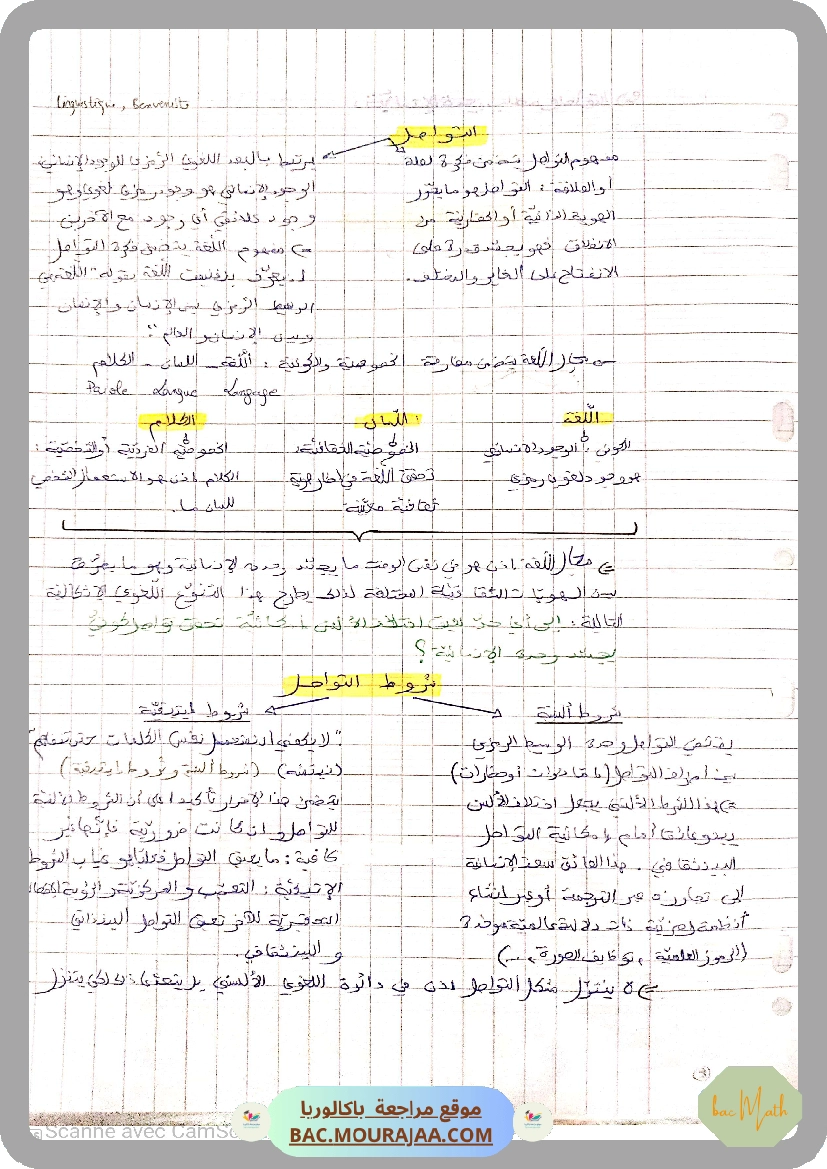 Linguistique, Benveniste
التواصل
مفهوم التواصل يتضمن فكرة الصلة
أو العلاقة: التواصل هو ما يحرّر
الهوية الذاتية أو الحضارية من
الانغلاق فهو يجسّد قدرة على
الانفتاح على الغاير والمختلف.
يرتبط بالبعد اللغوي الرّمزي للوجود الإنساني
الوجود الإنساني هو وجود رمزي لغوي وهو
وجود علائقي أي وجود مع الآخرين
=> مفهوم اللغة يتضمن فكرة التواصل
يعرّف بنفنيست اللغة بقوله "اللغة هي
الوسيط الرّمزي بين الإنسان والإنسان
وبين الإنسان والعالم".
مجال اللّغة يتضمن مفارقة الخصوصيّة والكونيّة: اللّغة - اللسان - الكلام
Parole Langue Langage
اللّغة
الكوني: الوجود الإنساني
هو وجود لغوي رمزي
اللّسان:
الخصوصيّة الثقافيّة:
تحقق اللّغة في إطار هوية
ثقافيّة معيّنة
الكلام
الخصوصيّة الفرديّة أو الشخصيّة:
الكلام إذن هو الاستعمال الشخصي
للسان ما.
=> مجال اللّغة إذن هو في نفس الوقت ما يجسّد وحدة الإنسانية وهو ما يفرّق
بين الهويّات الثقافيّة المختلفة لذلك يطرح هذا التنوّع اللّغوي الإشكاليّة
التالية: إلى أي حدّ يعيق اختلاف الألسن إمكانيّة تحقق تواصل كونيّ
يجسّد وحدة الإنسانية؟
شروط التواصل
شروط ألسنيّة
يقتضي التواصل وحدة الوسيط الرمزي
بين أطراف التواصل (ثقافات أو حضارات)
=> هذا الشرط الألسني يجعل اختلاف الألسن
يبدو عائقا أمام إمكانية التواصل
البينثقافي. هذا العائق سعت الإنسانية
إلى تجاوزه عبر الترجمة أو عبر إنشاء
أنظمة رمزيّة ذات دلالة عالمية موحّدة
(الرموز العلميّة، الصورة، ...)
شروط ايتيقيّة
"لا يكفي أن نستعمل نفس الكلمات حتى نتفاهم"
(نيتشه) (شروط ألسنيّة وشروط ايتيقيّة)
يتضمن هذا الإقرار تأكيدا على أن الشروط الألسنيّة
للتواصل وإن كانت ضروريّة فإنّها غير
كافية: ما يعيق التواصل فعليّا هو غياب الشروط
الإيتيقيّة: التعصّب والمركزيّة والرؤية
التحقيريّة للآخر تعيق التواصل البينذاتي
والبينثقافي.
=> لا ينزّل مشكل التواصل إذن في دائرة اللغوي الألسني بل يتعدّى ذلك لكي يتنزّل
Scanné avec CamSc
موقع مراجعة باكالوريا
BAC.MOURAJAA.COM
bac Math